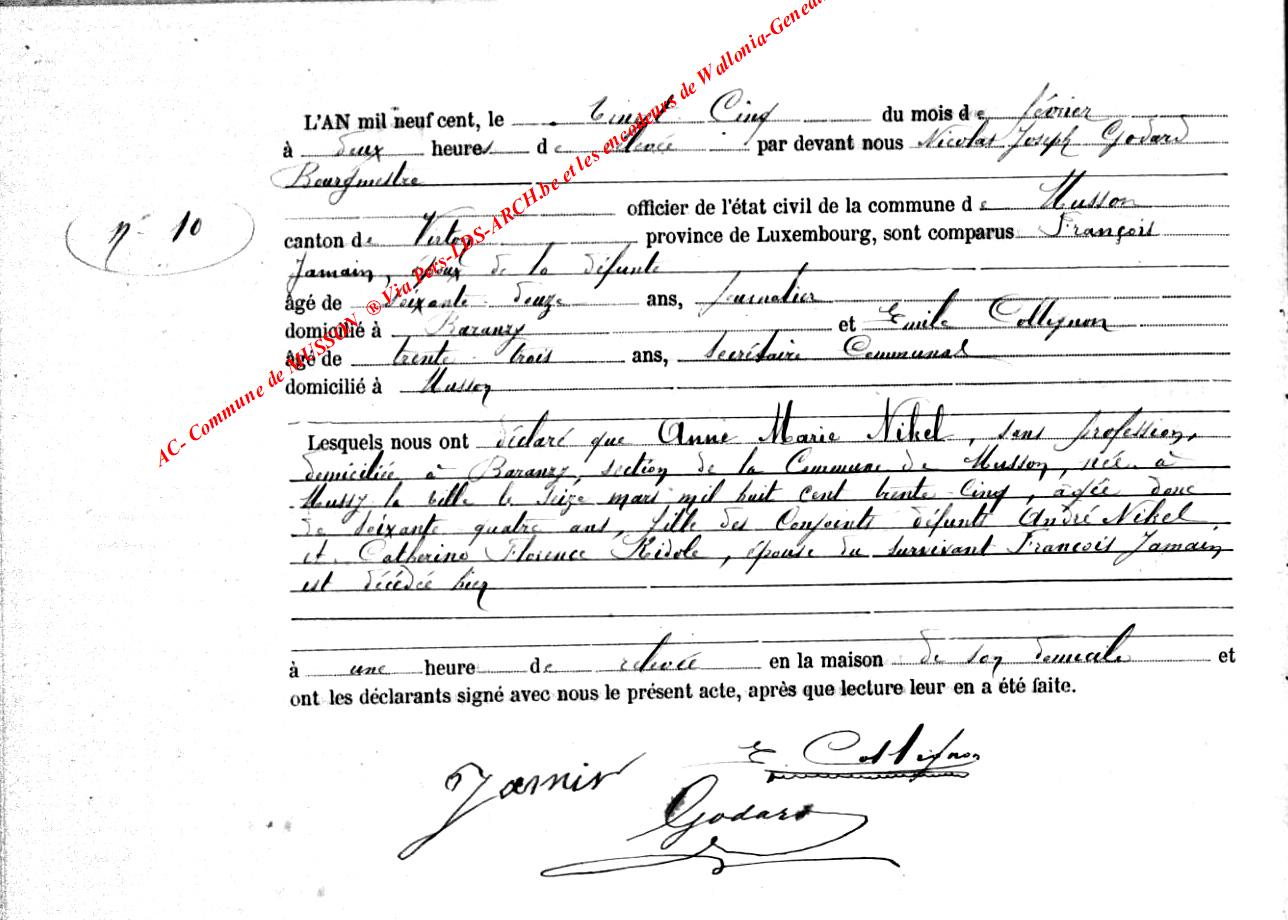 L'AN mil neuf cent, le vingt Cinq du mois de février
à deux heures de relevée par devant nous Nicolas Joseph Godard
Bourgmestre
officier de l'état civil de la commune de Musson
n° 10
canton de Virton province de Luxembourg, sont comparus François
Jamain, époux de la défunte
âgé de soixante douze ans, journalier
domicilié à Baranzy et Emile Collignon
âgé de trente trois ans, secrétaire Communal
domicilié à Musson
Lesquels nous ont déclaré que Anne Marie Nikel, sans profession,
domiciliée à Baranzy, section de la Commune de Musson, née à
Mussy la ville le seize mars mil huit cent trente Cinq, âgée donc
de soixante quatre ans, fille des Conjoints défunts André Nikel
et Catherine Florence Ridole, épouse du survivant François Jamain
est décédée hier
à une heure de relevée en la maison de son domicile et
ont les déclarants signé avec nous le présent acte, après que lecture leur en a été faite.
E. Collignon
Jamin
Godard
AC- Commune de MUSSON ® Via Pers-LDS-ARCH.be et les encodeurs de Wallonia-Genea